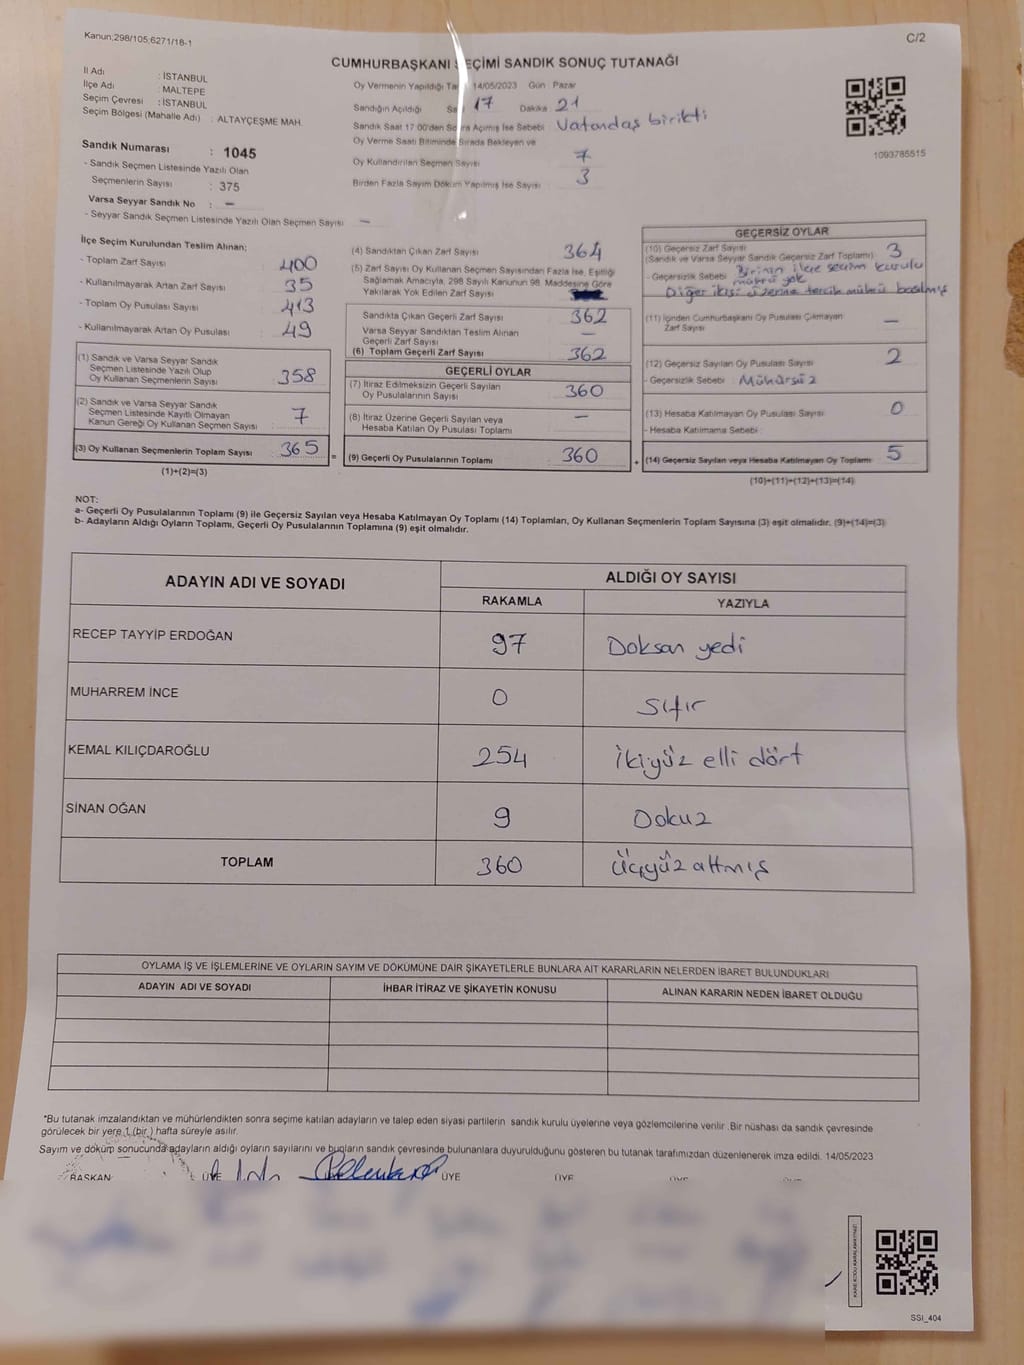 Kanun;298/105;6271/18-1
C/2
CUMHURBAŞKANI SEÇİMİ SANDIK SONUÇ TUTANAĞI
İl Adı : İSTANBUL
İlçe Adı : MALTEPE
Seçim Çevresi : İSTANBUL
Seçim Bölgesi (Mahalle Adı) : ALTAYÇEŞME MAH.
Sandık Numarası : 1045
- Sandık Seçmen Listesinde Yazılı Olan
Seçmenlerin Sayısı : 375
Varsa Seyyar Sandık No : -
- Seyyar Sandık Seçmen Listesinde Yazılı Olan Seçmen Sayısı -
Oy Vermenin Yapıldığı Ta 14/05/2023 Gün : Pazar
Sandığın Açıldığı Sa 17 Dakika 21
Sandık Saat 17.00'den Sonra Açımış İse Sebebi : Vatandaş birikti
Oy Verme Saati Bitiminde Sırada Bekleyen ve
Oy Kullandırılan Seçmen Sayısı 7
Birden Fazla Sayım Döküm Yapılmış İse Sayısı 3
1093785515
İlçe Seçim Kurulundan Teslim Alınan;
- Toplam Zarf Sayısı : 400
- Kullanılmayarak Artan Zarf Sayısı : 35
- Toplam Oy Pusulası Sayısı : 413
- Kullanılmayarak Artan Oy Pusulası : 49
(1) Sandık ve Varsa Seyyar Sandık
Seçmen Listesinde Yazılı Olup
Oy Kullanan Seçmenlerin Sayısı : 358
(2) Sandık ve Varsa Seyyar Sandık
Seçmen Listesinde Kayıtlı Olmayan
Kanun Gereği Oy Kullanan Seçmen Sayısı : 7
(3) Oy Kullanan Seçmenlerin Toplam Sayısı : 365
(1)+(2)=(3)
(4) Sandıktan Çıkan Zarf Sayısı 364
(5) Zarf Sayısı Oy Kullanan Seçmen Sayısından Fazla İse, Eşitliği
Sağlamak Amacıyla, 298 Sayılı Kanunun 98. Maddesine Göre
Yakılarak Yok Edilen Zarf Sayısı :
Sandıkta Çıkan Geçerli Zarf Sayısı : 362
Varsa Seyyar Sandıktan Teslim Alınan
Geçerli Zarf Sayısı : -
(6) Toplam Geçerli Zarf Sayısı : 362
GEÇERLİ OYLAR
(7) İtiraz Edilmeksizin Geçerli Sayılan
Oy Pusulalarının Sayısı : 360
(8) İtiraz Üzerine Geçerli Sayılan veya
Hesaba Katılan Oy Pusulası Toplamı : -
=
(9) Geçerli Oy Pusulalarının Toplamı : 360
GEÇERSİZ OYLAR
(10) Geçersiz Zarf Sayısı 3
(Sandık ve Varsa Seyyar Sandık Geçersiz Zarf Toplamı)
- Geçersizlik Sebebi : Birinin ilçe seçim kurulu
mührü yok
Diğer ikisi üzerine tercih mührü basılmış
(11) İçinden Cumhurbaşkanı Oy Pusulası Çıkmayan
Zarf Sayısı : -
(12) Geçersiz Sayılan Oy Pusulası Sayısı : 2
- Geçersizlik Sebebi : Mühürsüz
(13) Hesaba Katılmayan Oy Pusulası Sayısı : 0
- Hesaba Katılmama Sebebi :
+
(14) Geçersiz Sayılan veya Hesaba Katılmayan Oy Toplamı : 5
(10)+(11)+(12)+(13)=(14)
NOT:
a- Geçerli Oy Pusulalarının Toplamı (9) ile Geçersiz Sayılan veya Hesaba Katılmayan Oy Toplamı (14) Toplamları, Oy Kullanan Seçmenlerin Toplam Sayısına (3) eşit olmalıdır. (9)+(14)=(3)
b- Adayların Aldığı Oyların Toplamı, Geçerli Oy Pusulalarının Toplamına (9) eşit olmalıdır.
ADAYIN ADI VE SOYADI
ALDIĞI OY SAYISI
RAKAMLA YAZIYLA
RECEP TAYYİP ERDOĞAN 97 Doksan yedi
MUHARREM İNCE 0 sıfır
KEMAL KILIÇDAROĞLU 254 İkiyüz elli dört
SİNAN OĞAN 9 Dokuz
TOPLAM 360 Üçyüz altmış
OYLAMA İŞ VE İŞLEMLERİNE VE OYLARIN SAYIM VE DÖKÜMÜNE DAİR ŞİKAYETLERLE BUNLARA AİT KARARLARIN NELERDEN İBARET BULUNDUKLARI
ADAYIN ADI VE SOYADI İHBAR İTİRAZ VE ŞİKAYETİN KONUSU ALINAN KARARIN NEDEN İBARET OLDUĞU
*Bu tutanak imzalandıktan ve mühürlendikten sonra seçime katılan adayların ve talep eden siyasi partilerin sandık kurulu üyelerine veya gözlemcilerine verilir .Bir nüshası da sandık çevresinde
görülecek bir yere 1 (bir ) hafta süreyle asılır.
Sayım ve döküm sonucunda adayların aldığı oyların sayılarını ve bunların sandık çevresinde bulunanlara duyurulduğunu gösteren bu tutanak tarafımızdan düzenlenerek imza edildi. 14/05/2023
BAŞKAN ÜYE ÜYE ÜYE
SSI_404